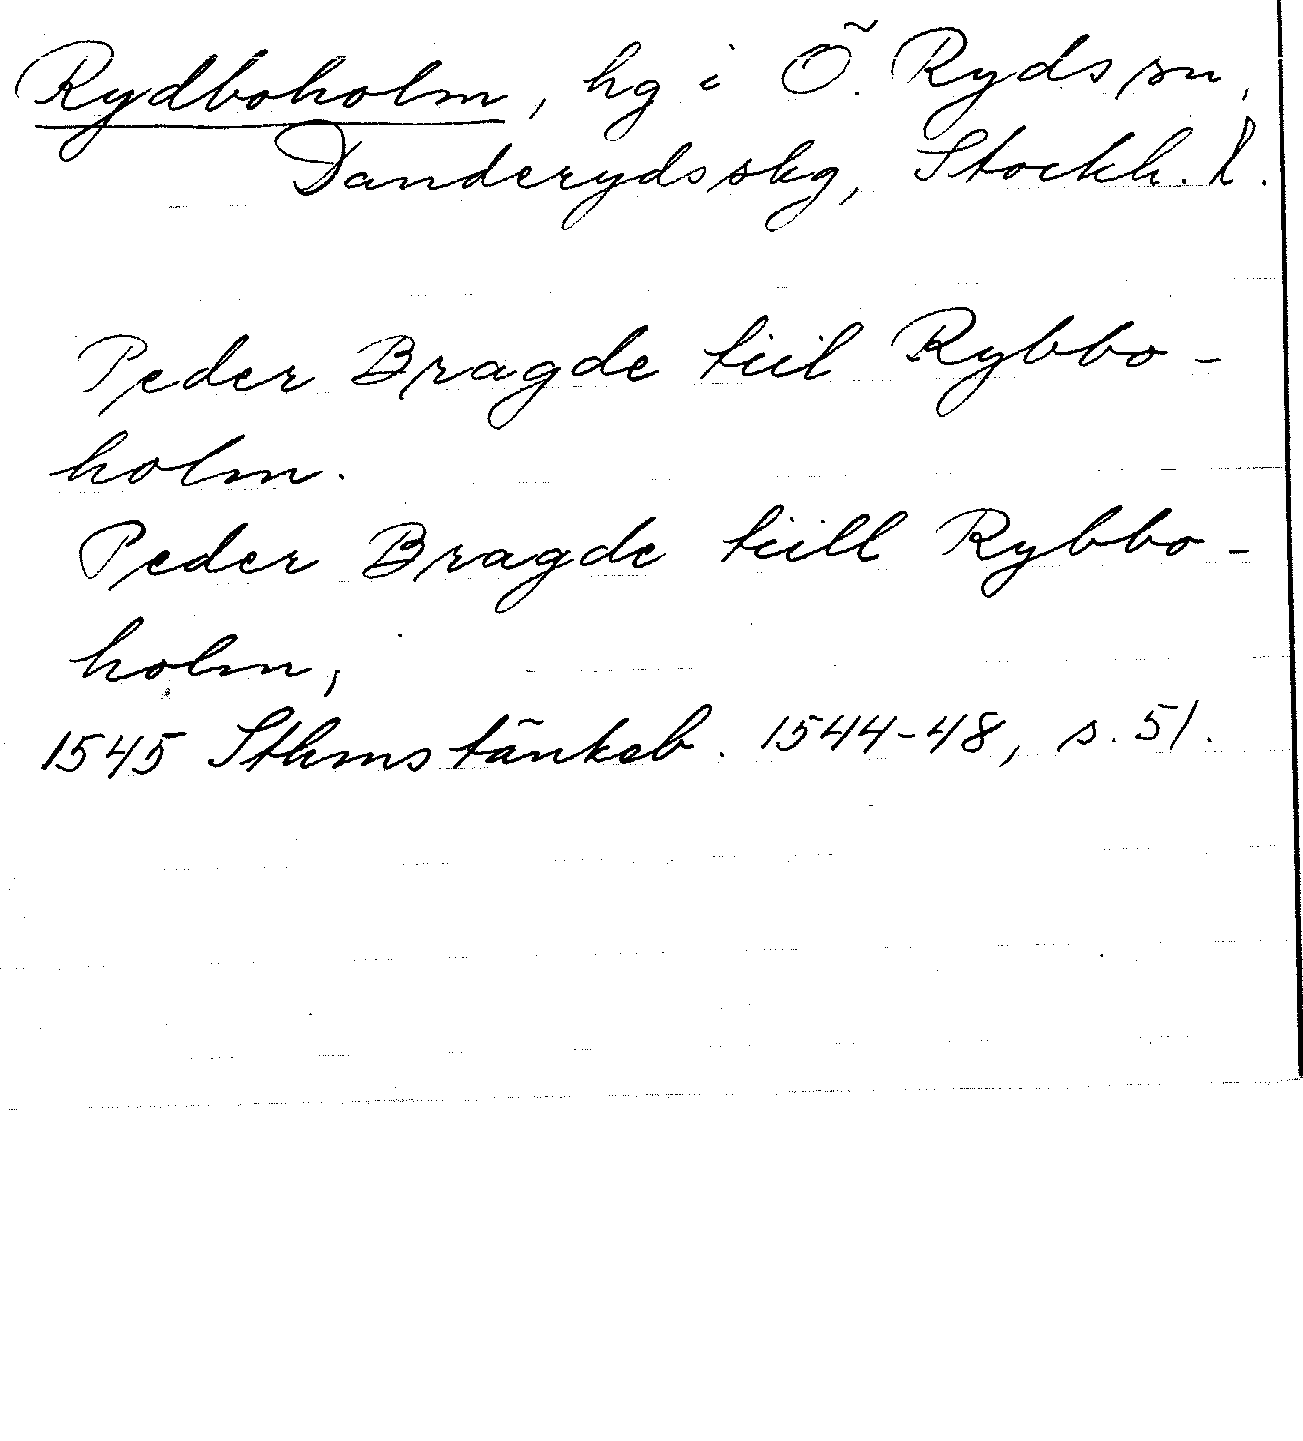 Rydboholm, hg i Ö. Ryds sn,
Danderydsskg, Stockh. l.
Peder Bragde tiil Rybbo-
holm.
Peder Bragde tiill Rybbo-
holm,
1545 Sthms tänkeb. 1544-48, s. 51.